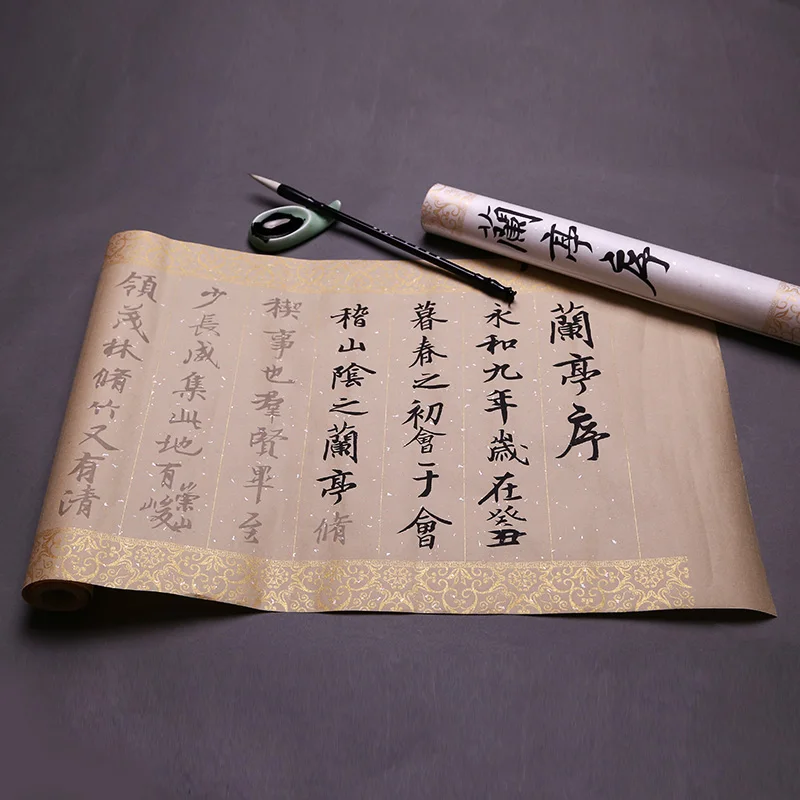 蘭亭序
永和九年歲在癸丑
暮春之初會于會
稽山陰之蘭亭脩
禊事也羣賢畢至
少長咸集此地有崇山峻
領茂林脩竹又有清
蘭亭序